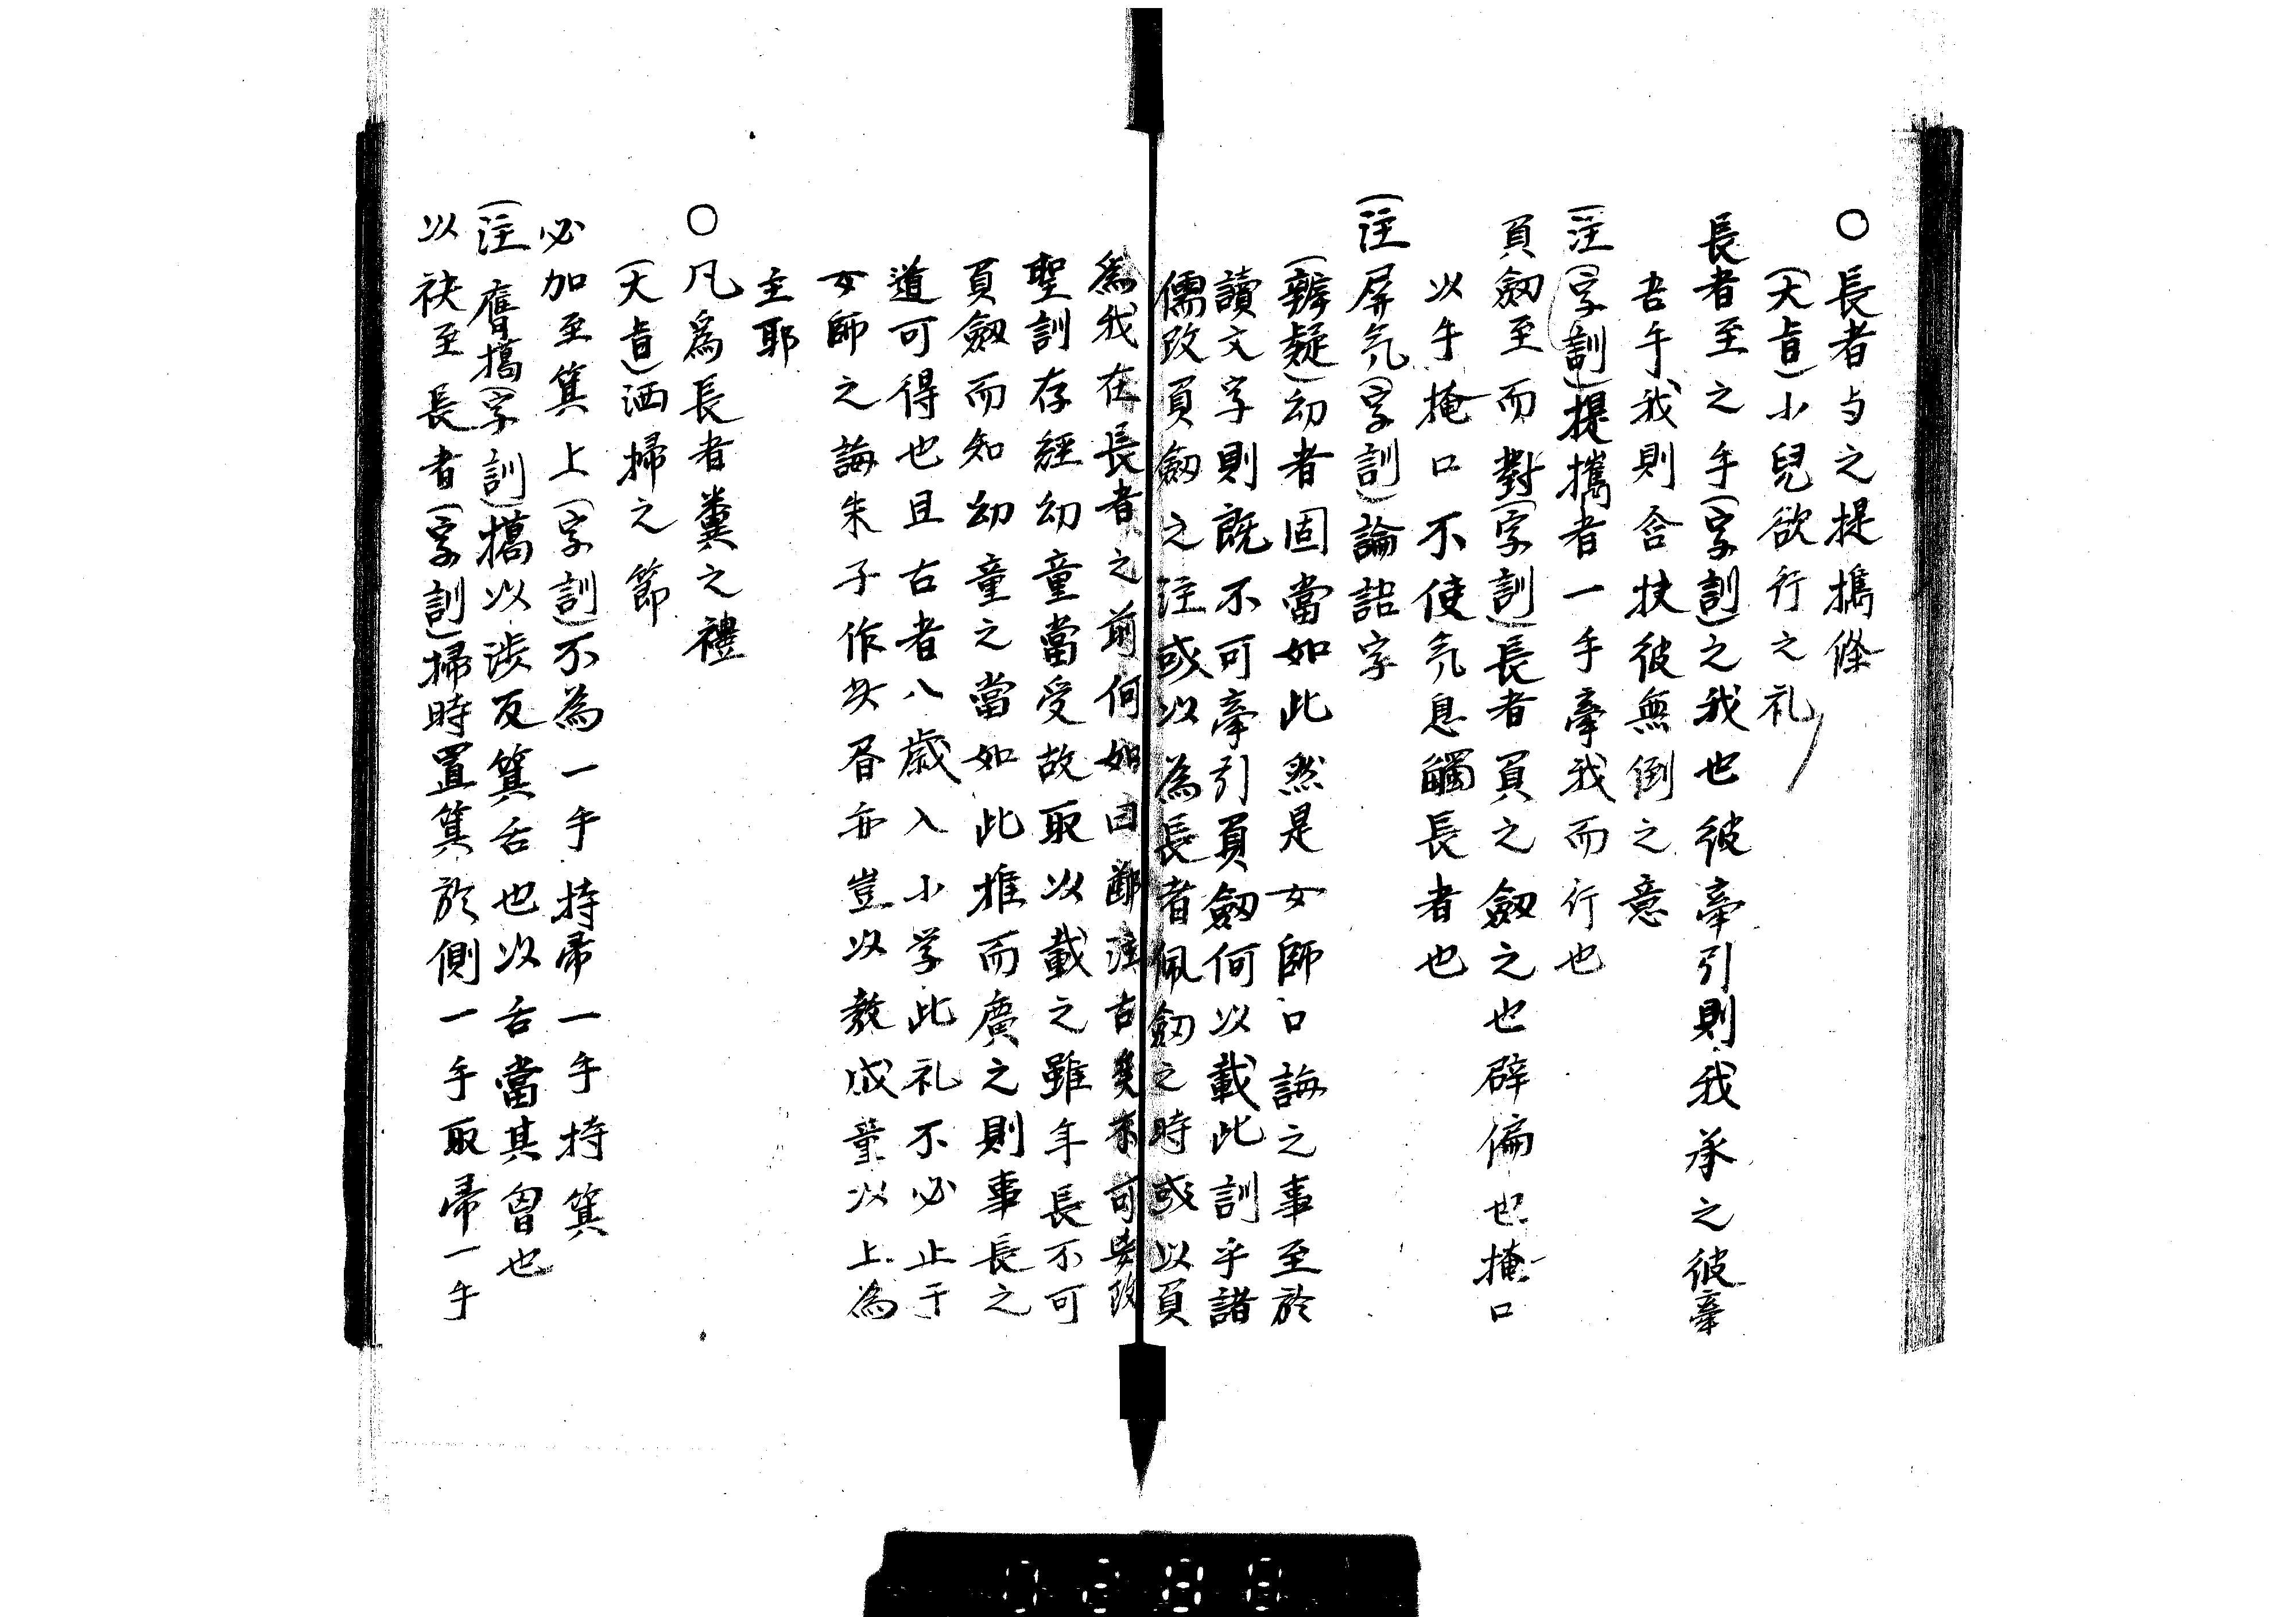 ○長者与之提携條
(大旨)小兒欲行之礼
長者至之手(字訓)之我也彼牽引則我承之彼牽
吾手我則合扶彼無倒之意
注(字訓)提攜者一手牽我而行也
負劔至而對(字訓)長者負之劔之也辟偏也掩口
以手掩口不使気息觸長者也
(注屏気(字訓)論語字
(辨疑)幼者固當如此然是女師口誨之事至於
讀文字則既不可牽引負劔何以載此訓乎諸
儒改負劔之注或以為長者佩劔之時或以負
為我在長者之前何如曰鄭注古矣不可妄改
聖訓存經幼童當受故取以載之雖年長不可
負劔而知幼童之當如此推而廣之則事長之
道可得也且古者八歲入小学此礼不必止于
女師之誨朱子作此眉亦豈以教成童以上為
主耶
○凡爲長者糞之禮
(大旨)洒掃之節
必加至箕上(字訓)不為一手持帚一手持箕
(注舊搞(字訓)搞以涉反箕舌也以舌當其胷也
以袂至長者(字訓)掃時置箕於側一手取帚一手